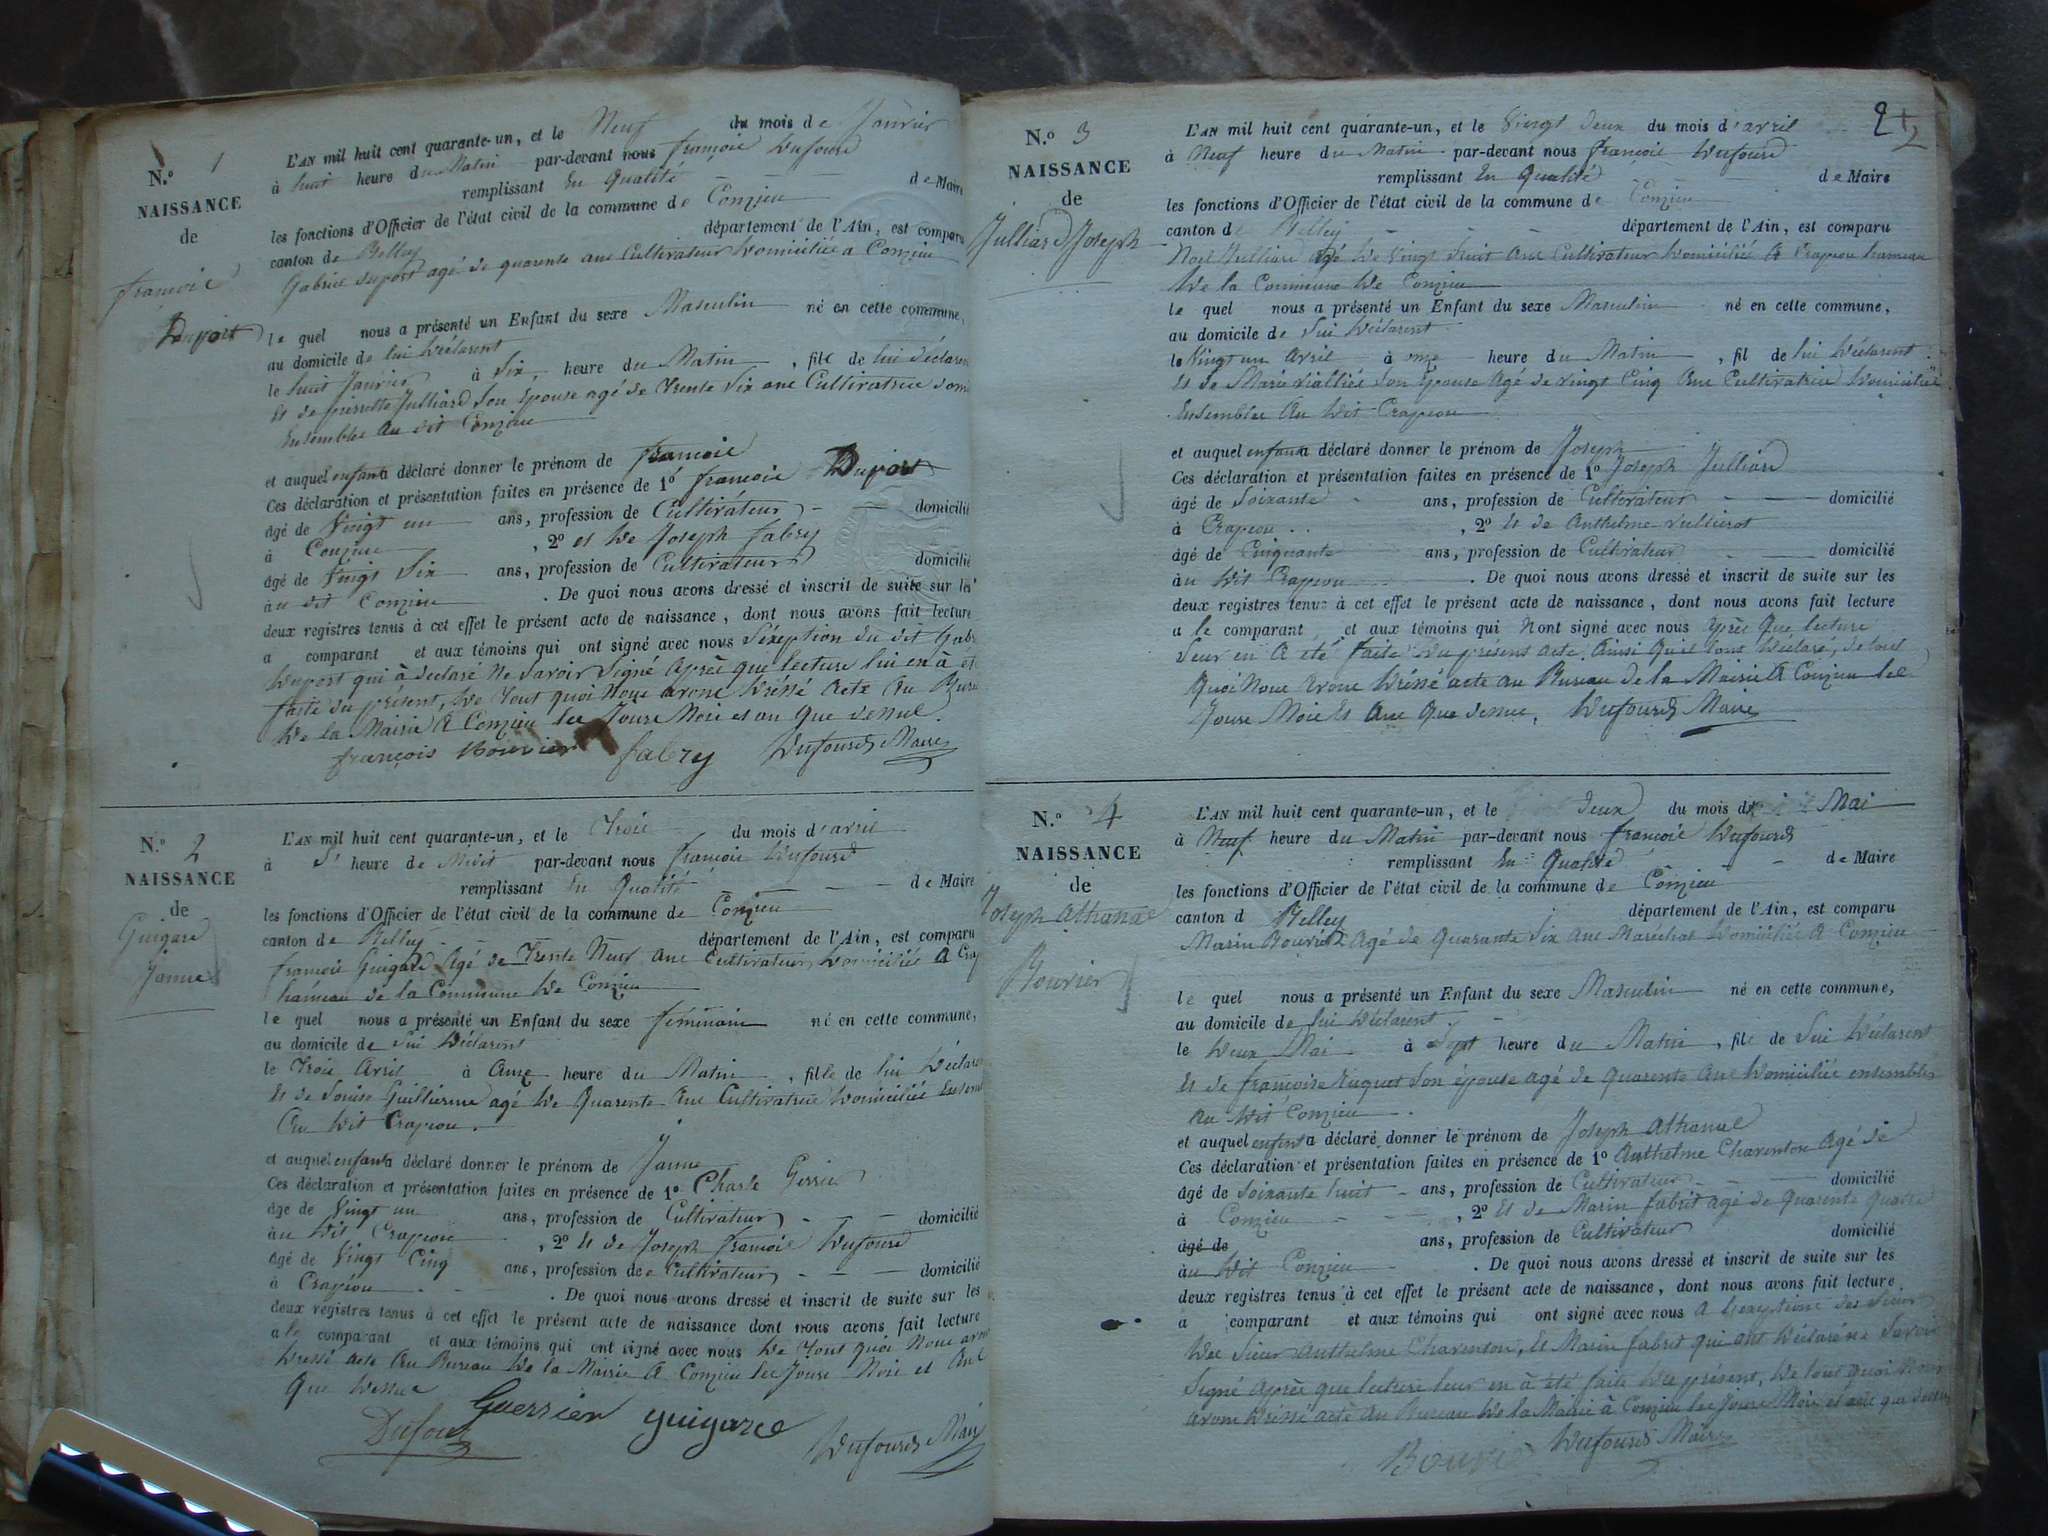 N.o 1
NAISSANCE
de
françoie
Duport
L'AN mil huit cent quarante-un, et le Neuf du mois de Janvier
à huit heure du Matin par-devant nous françoie Dufourd
remplissant En Qualité de Maire
les fonctions d'Officier de l'état civil de la commune de Conzieu
canton de Belley département de l'Ain, est comparu
Gabriel Duport agé de quarente ans Cultivateur Domicilié a Conzieu
le quel nous a présenté un Enfant du sexe Masculin né en cette commune,
au domicile de lui Déclarent
le huit Janvier à Six heure du Matin, fils de lui déclarent
Et de pierrette Julliard Son Epouse agé de Trente Six ans Cultivatrice
Ensembles au dit Conzieu
et auquel enfant a déclaré donner le prénom de françoie
Ces déclaration et présentation faites en présence de 1o françoie Duport
âgé de Vingt un ans, profession de Cultivateur domicilié
à Conzieu, 2o et De Joseph fabry
âgé de Vingt Six ans, profession de Cultivateur domicilié
au dit Conzieu. De quoi nous avons dressé et inscrit de suite sur les
deux registres tenus à cet effet le présent acte de naissance, dont nous avons fait lecture
a comparant et aux témoins qui ont signé avec nous du dit
Duport qui à déclaré Ne Savoir Signé Après que lecture lui en à
faite du présent, De Tout quoi Nous avons Dréssé acte Au
De la Mairie A Conzieu les Jours Mois et an Que dessus.
françois Bouvier fabry Dufourd Maire
N.o 2
NAISSANCE
de
Guigard
Janne
L'AN mil huit cent quarante-un, et le Trois du mois d'avril
à heure de Midi par-devant nous françoie Dufourd
remplissant En Qualité de Maire
les fonctions d'Officier de l'état civil de la commune de Conzieu
canton de Belley département de l'Ain, est comparu
françoie Guigard Agé de Trente Neuf ans Cultivateur Domicilié A
hameau de la Commune De Conzieu
le quel nous a présenté un Enfant du sexe féminain né en cette commune,
au domicile de Lui Déclarent
le Trois Avril à heure du Matin, fille de lui
Et de Louise Guillierme agé De Quarente Ans Cultivatrice Domicilié
Au Dit Crapeou.
et auquel enfant a déclaré donner le prénom de Janne
Ces déclaration et présentation faites en présence de 1o Charle
âge de Vingt un ans, profession de Cultivateur domicilié
au Dit Crapeou, 2o Et de Joseph françoie Dufourd
âgé de Vingt Cinq ans, profession de Cultivateur domicilié
à Crapeou. De quoi nous avons dressé et inscrit de suite sur les
deux registres tenus à cet effet le présent acte de naissance dont nous avons fait lecture
a le comparant et aux témoins qui ont signé avec nous De Tout quoi Nous
Dressé acte Au Bureau De la Mairie A Conzieu les Jours Mois et Ans
Que Dessus
Dufour Guerrier guigard Dufourd Maire
2
N.o 3
NAISSANCE
de
Julliard Joseph
L'AN mil huit cent quarante-un, et le Vingt deux du mois d'avril
à Neuf heure du Matin par-devant nous françoie Dufourd
remplissant En Qualité de Maire
les fonctions d'Officier de l'état civil de la commune de Conzieu
canton de Belley département de l'Ain, est comparu
Noel Julliard Agé De Vingt huit Ans Cultivateur Domicilié A Crapeou hameau
De la Commune De Conzieu
le quel nous a présenté un Enfant du sexe Masculin né en cette commune,
au domicile de Lui Déclarent
le Vingt un Avril à onze heure du Matin, fil de lui Déclarent
Et de Marie Son Epouse Agé de vingt Cinq Ans Cultivatrice Domicilié
Ensembles Au Dit Crapeou
et auquel enfant a déclaré donner le prénom de Joseph
Ces déclaration et présentation faites en présence de 1o Joseph Julliard
âgé de Soixante ans, profession de Cultivateur domicilié
à Crapeou, 2o Et de Anthelme
âgé de Cinquante ans, profession de Cultivateur domicilié
au Dit Crapeou. De quoi nous avons dressé et inscrit de suite sur les
deux registres tenus à cet effet le présent acte de naissance, dont nous avons fait lecture
a le comparant, et aux témoins qui Nont signé avec nous Après Que lecture
Leur en A été faite du présent acte. Ainsi Qu'il Lont Déclaré, de tout
Quoi Nous Avons Dréssé acte au Bureau de la Mairie A Conzieu les
Jours Mois Et Ans Que dessus. Dufourd Maire
N.o 4
NAISSANCE
de
Joseph Athanase
Bouvier
L'AN mil huit cent quarante-un, et le deux du mois de Mai
à Neuf heure du Matin par-devant nous françoie Dufourd
remplissant En Qualité de Maire
les fonctions d'Officier de l'état civil de la commune de Conzieu
canton d Belley département de l'Ain, est comparu
Marin Bouvier Agé de Quarante Six ans Maréchal Domicilié A Conzieu
le quel nous a présenté un Enfant du sexe Masculin né en cette commune,
au domicile de lui Déclarent
le Deux Mai à Sept heure du Matin, fils de Lui Déclarent
Et de françoise Son épouse agé de Quarente ans Domicilié ensembles
Au Dit Conzieu.
et auquel enfent a déclaré donner le prénom de Joseph Athanase
Ces déclaration et présentation faites en présence de 1o Anthelme Charenton Agé de
âgé de Soixante huit ans, profession de Cultivateur domicilié
à Conzieu, 2o Et de Marin fabrit agé de Quarente Quatre
âgé de ans, profession de Cultivateur domicilié
au Dit Conzieu. De quoi nous avons dressé et inscrit de suite sur les
deux registres tenus à cet effet le présent acte de naissance, dont nous avons fait lecture
a comparant et aux témoins qui ont signé avec nous A des Sieur
Des Sieur Anthelme Charenton, Et Marin fabrit qui ont Déclaré ne Savoir
Signé Après que lecture leur en à été faite Du présent, De tout quoi Nous
avons Dréssé acte Au Bureau De la Mairie à Conzieu les Jours Mois et ans que dessus
Bouvier Dufourd Maire